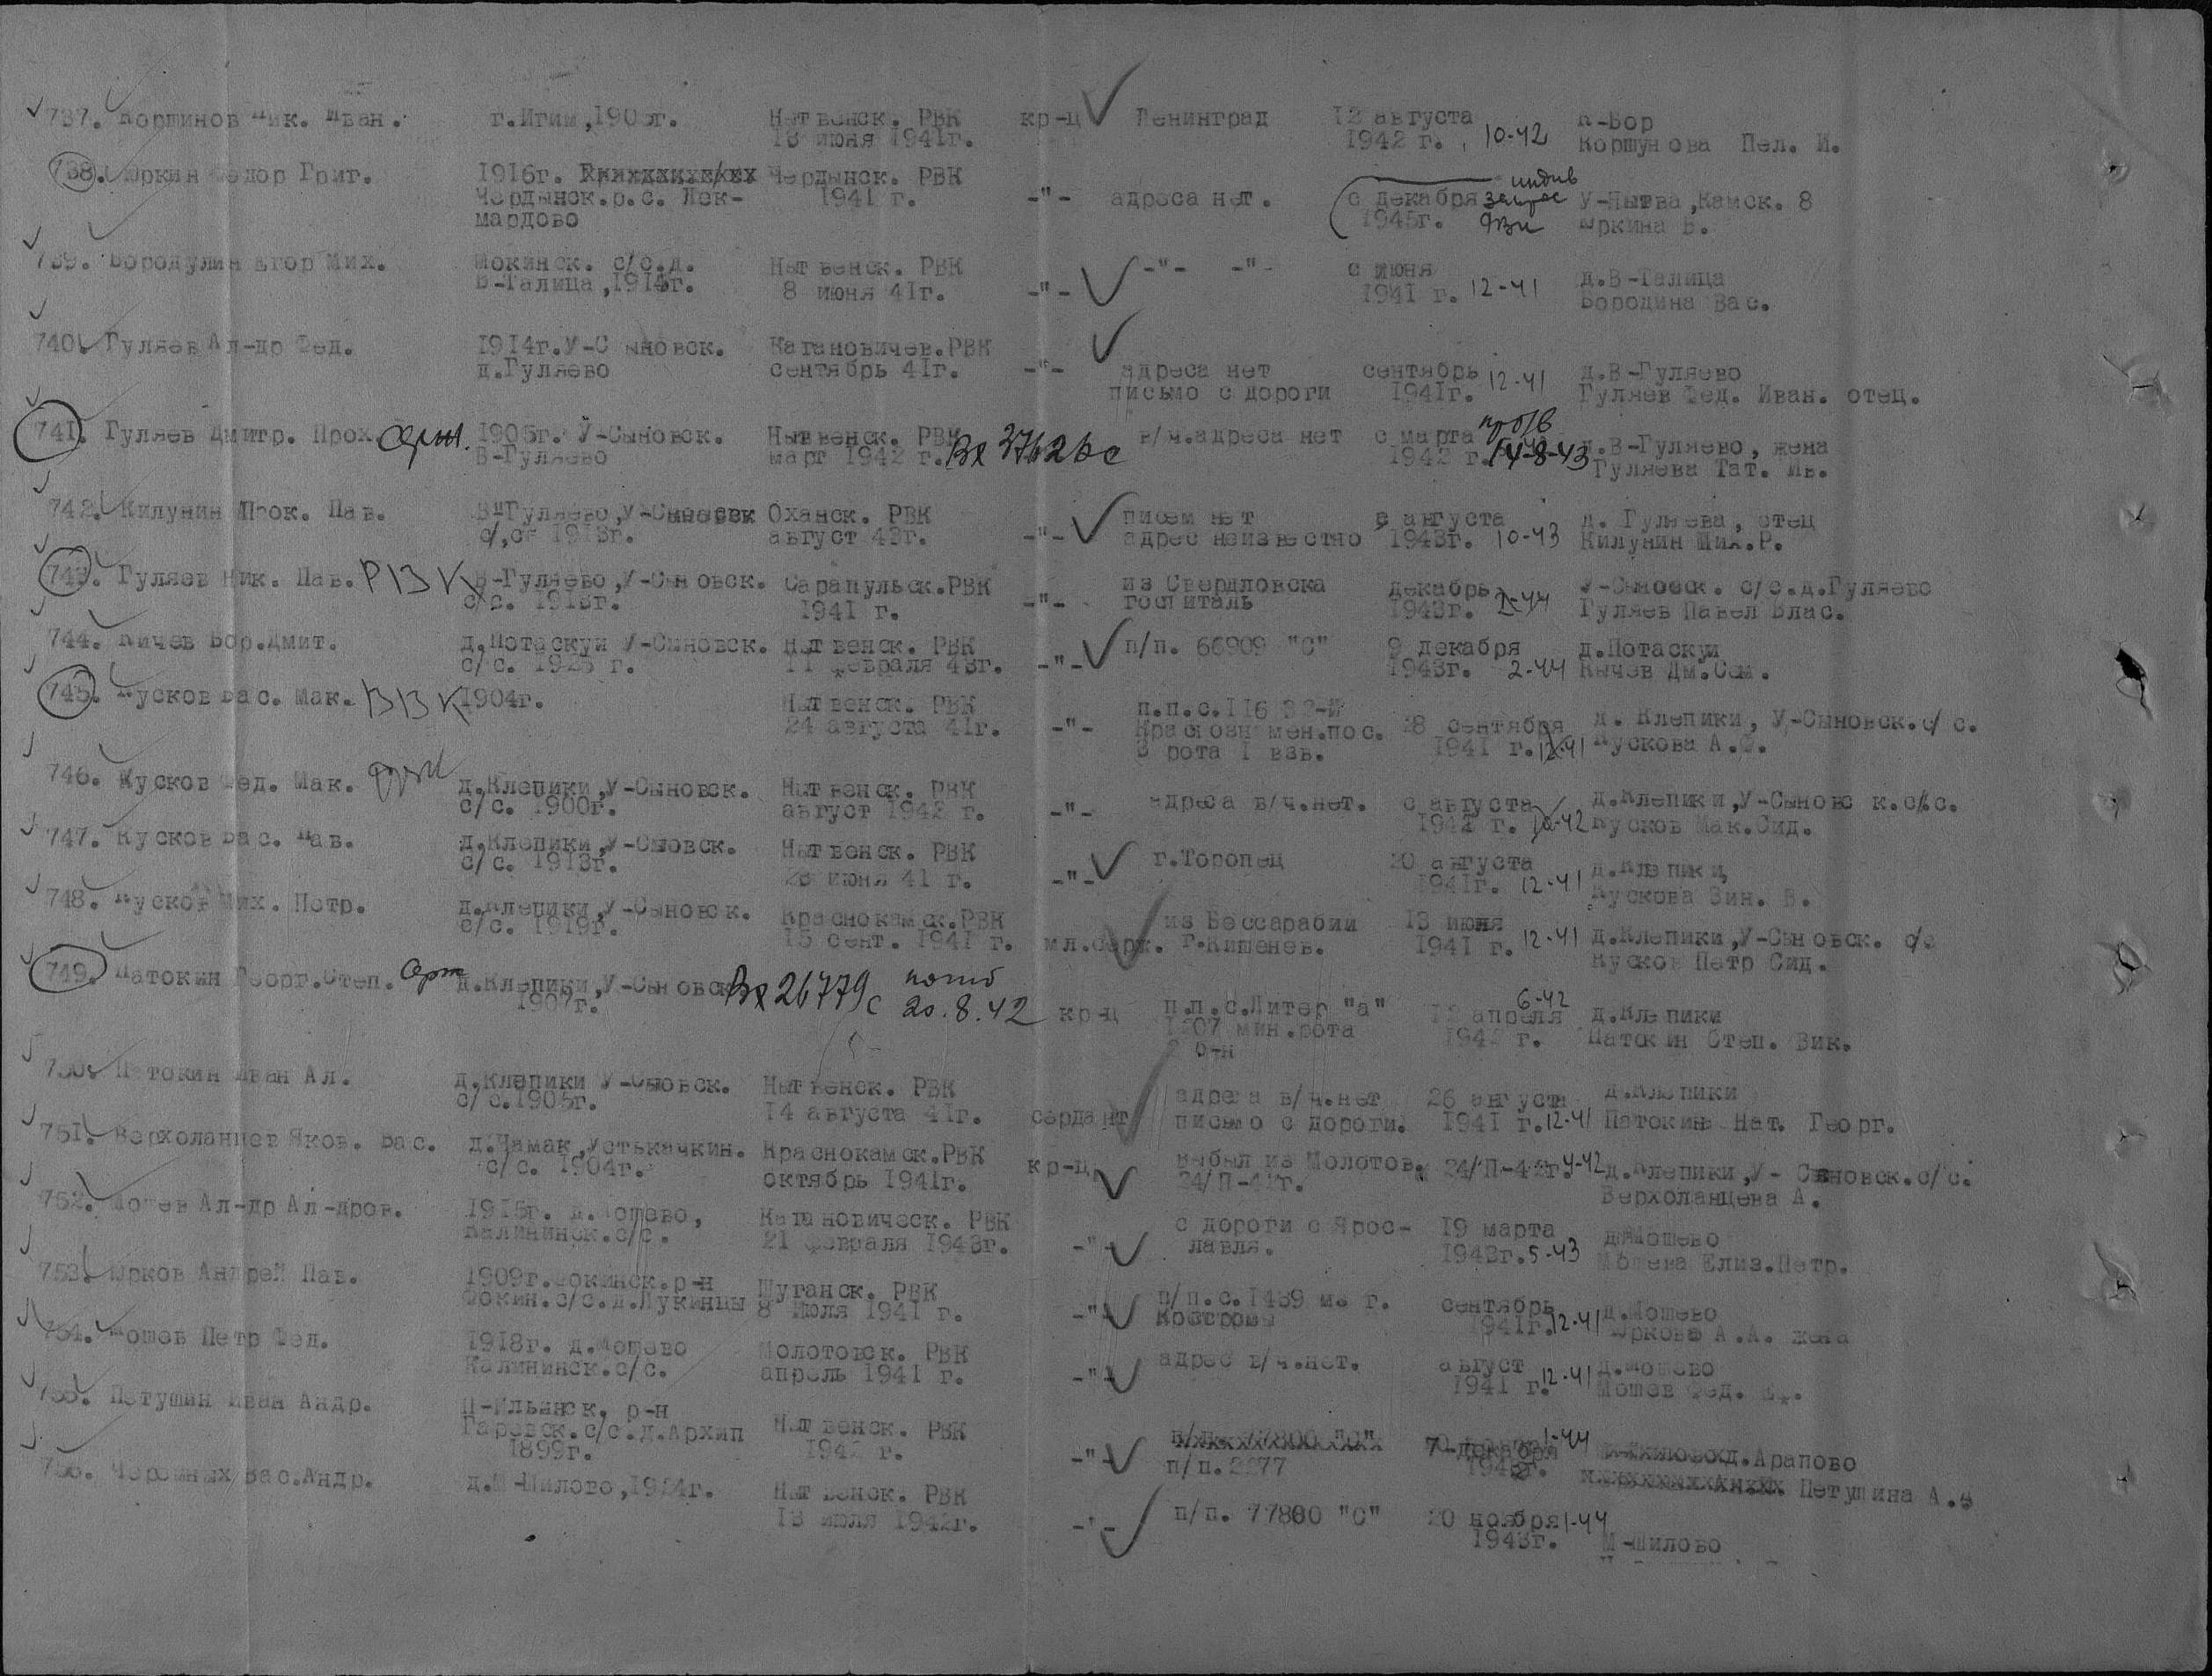 737. Коршинов Ник. Иван. г.Игим,1905г. Нытвенск. РВК кр-ц Ленинград 12 августа К-Бор
18 июня 1941г. 1942 г. 10-42 Коршунова Пел. И.
738. Юркин Федор Григ. 1916г. Чердынск. РВК
Чердынск.р.с. Лек- 1941 г. -"- адреса нет. с декабря У-Нытва,Камск. 8
мардово 1945г. Юркина Е.
739. Бородулин Егор Мих. Мокинск. с/с.д. Нытвенск. РВК -"- -"- с июня д.В-Талица
В-Талица,1914г. 8 июня 41г. -"- 1941 г. 12-41 Бородина Вас.
740. Гуляев Ал-др Фед. 1914г.У-Сыновск. Кагановичев.РВК
д.Гуляево сентябрь 41г. -"- адреса нет сентябрь 12-41 д.В-Гуляево
письмо с дороги 1941г. Гуляев Фед. Иван. отец.
741. Гуляев Дмитр. Прох. 1905г. У-Сыновск. Нытвенск. РВК в/ч.адреса нет с марта д.В-Гуляево, жена
В-Гуляево март 1942 г. Вх 37626с 1942 г. 14-8-43 Гуляева Тат. Ив.
742. Килунин Прок. Пав. В-Гуляево,У-Сыновск Оханск. РВК писем нет с августа д. Гуляева, отец
с/с 1918г. август 43г. -"- адрес неизвестно 1943г. 10-43 Килунин Мих.Р.
743. Гуляев Ник. Пав. РВК В-Гуляево,У-Сыновск. Сарапульск.РВК из Свердловска декабрь У-Сыновск. с/с.д.Гуляево
с/с. 1918г. 1941 г. -"- госпиталь 1943г. 2-44 Гуляев Павел Влас.
744. Кичев Бор.Дмит. д.Потаскуи У-Сыновск. Нытвенск. РВК п/п. 66909 "С" 9 декабря д.Потаскуи
с/с. 1925 г. 11 февраля 43г. -"- 1943г. 2-44 Кычев Дм.Сем.
745. Кусков Вас. Мак. РВК 1904г. Нытвенск. РВК п.п.с.116 33-й
24 августа 41г. -"- Краснознамен.пос. 28 сентября д. Клепики, У-Сыновск.с/с.
3 рота 1 взв. 1941 г. 12-41 Кускова А.Ф.
746. Кусков Фед. Мак. д.Клепики,У-Сыновск. Нытвенск. РВК адреса в/ч.нет. с августа д.Клепики,У-Сыновск.с/с.
с/с. 1900г. август 1942 г. -"- 1942 г. 10-42 Кусков Мак.Сид.
747. Кусков Вас. Пав. д.Клепики,У-Сыновск. Нытвенск. РВК г.Торопец 20 августа д.Клепики,
с/с. 1913г. 23 июня 41 г. -"- 1941г. 12-41 Кускова Зин. В.
748. Кусков Мих. Петр. д.Клепики,У-Сыновск. Краснокамск.РВК из Бессарабии 13 июня
с/с. 1919г. 15 сент. 1941 г. мл.серж. г.Кишенев. 1941 г. 12-41 д.Клепики,У-Сыновск. с/с
Кусков Петр Сид.
749. Патокин Георг.Степ. д.Клепики,У-Сыновск Вх 26779с погиб 6-42
1907г. 20.8.42 кр-ц п.п.с.Литер "а" 12 апреля д.Клепики
1207 мин.рота 1942 г. Патокин Степ. Вик.
б-н
750. Патокин Иван Ал. д.Клепики У-Сыновск. Нытвенск. РВК адреса в/ч.нет 26 августа д.Клепики
с/с.1905г. 14 августа 41г. сердант письмо с дороги. 1941 г. 12-41 Патокина Нат. Георг.
751. Верхоланцев Яков. Вас. д.Чамак,Устькачкин. Краснокамск.РВК кр-ц выбыл из Молотов. 24/П-42г. 4-42 д.Клепики,У-Сыновск.с/с.
с/с. 1904г. октябрь 1941г. 24/П-42г. Верхоланцева А.
752. Мошев Ал-др Ал-дров. 1915г. д.Мошево, Кагановическ. РВК с дороги с Ярос- 19 марта д.Мошево
Калининск.с/с. 21 февраля 1943г. -"- лавля. 1943г. 5-43 Мошева Елиз.Петр.
753. Юрков Андрей Пав. 1909г. р-н Шуганск. РВК п/п.с.1439 сентябрь д.Мошево
Фокин.с/с.д.Лукинцы 8 июля 1941 г. -"- Кострома 1941г. 12-41 Юркова А.А. жена
754. Мошев Петр Фед. 1918г. д.Мошево Молотовск. РВК адрес в/ч.нет. август д.Мошево
Калининск.с/с. апрель 1941 г. -"- 1941 г. 12-41 Мошев Фед.
755. Петушин Иван Андр. П-Ильинск. р-н
Гаревск.с/с.д.Архип Нытвенск. РВК п/п. 77800 "С" 7 декабря 1-44 д.Арапово
1899г. 1942 г. -"- п/п.2277 1943г. Петушина А.
756. Черемных Вас.Андр. д.М-Шилово,1924г. Нытвенск. РВК п/п. 77800 "С" 20 ноября 1-44
13 июля 1942г. -"- 1943г. М-Шилово